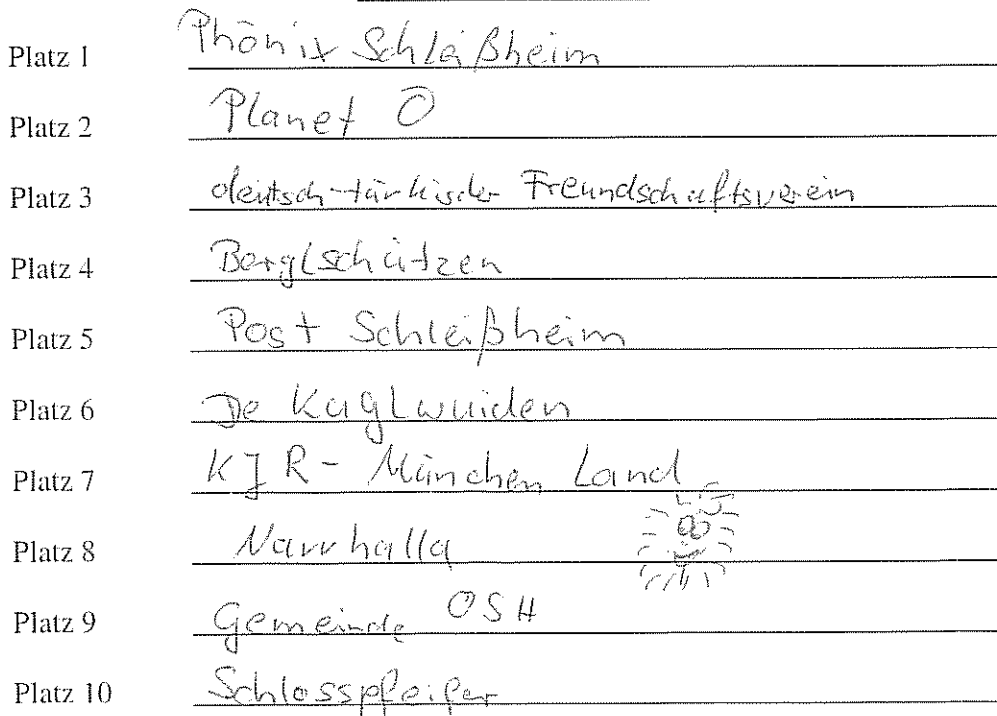 Platz 1 Phönix Schleißheim
Platz 2 Planet O
Platz 3 deutsch-türkischer Freundschaftsverein
Platz 4 Berglschützen
Platz 5 Post Schleißheim
Platz 6 De Kuglwuiden
Platz 7 KJR - München Land
Platz 8 Narrhalla
Platz 9 Gemeinde OSH
Platz 10 Schlosspfeifer